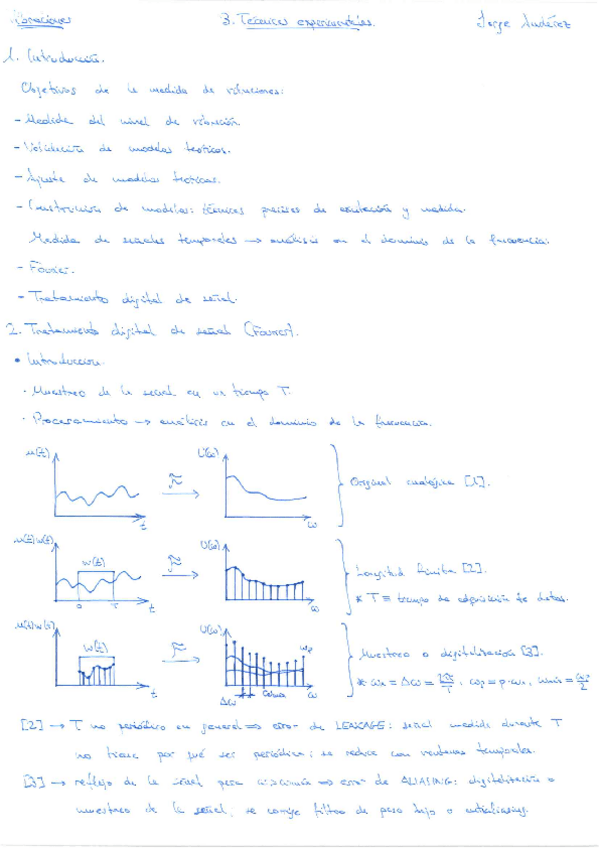 Vibraciones 3. Técnicas experimentales. Jorge
1. Introducción.
Objetivos de la medida de vibraciones:
- Medida del nivel de vibración
- Validación de modelos teóricos.
- Ajuste de modelos teóricos.
- Construcción de modelos: técnicas precisas de excitación y medida.
Medida de señales temporales → análisis en el dominio de la frecuencia:
- Fourier.
- Tratamiento digital de señal.
2. Tratamiento digital de señal (Fourier).
• Introducción.
· Muestreo de la señal en un tiempo T.
· Procesamiento → análisis en el dominio de la frecuencia.
u(t) U(ω)
Original analógica [1].
t ω
u(t)w(t) w(t) U(ω)
Longitud finita [2].
* T ≡ tiempo de adquisición de datos.
0 T t ω
u(t)w(t) w(t) U(ω) ωp
Muestreo o digitalización [3].
t Δω ωmax ω
[2] → T no periódico en general ⇒ error de LEAKAGE: señal medida durante T
no tiene por qué ser periódica; se reduce con ventanas temporales.
[3] → reflejo de la señal para ⇒ error de ALIASING: digitalización o
muestreo de la señal, se corrige filtro de paso bajo o antialiasing.